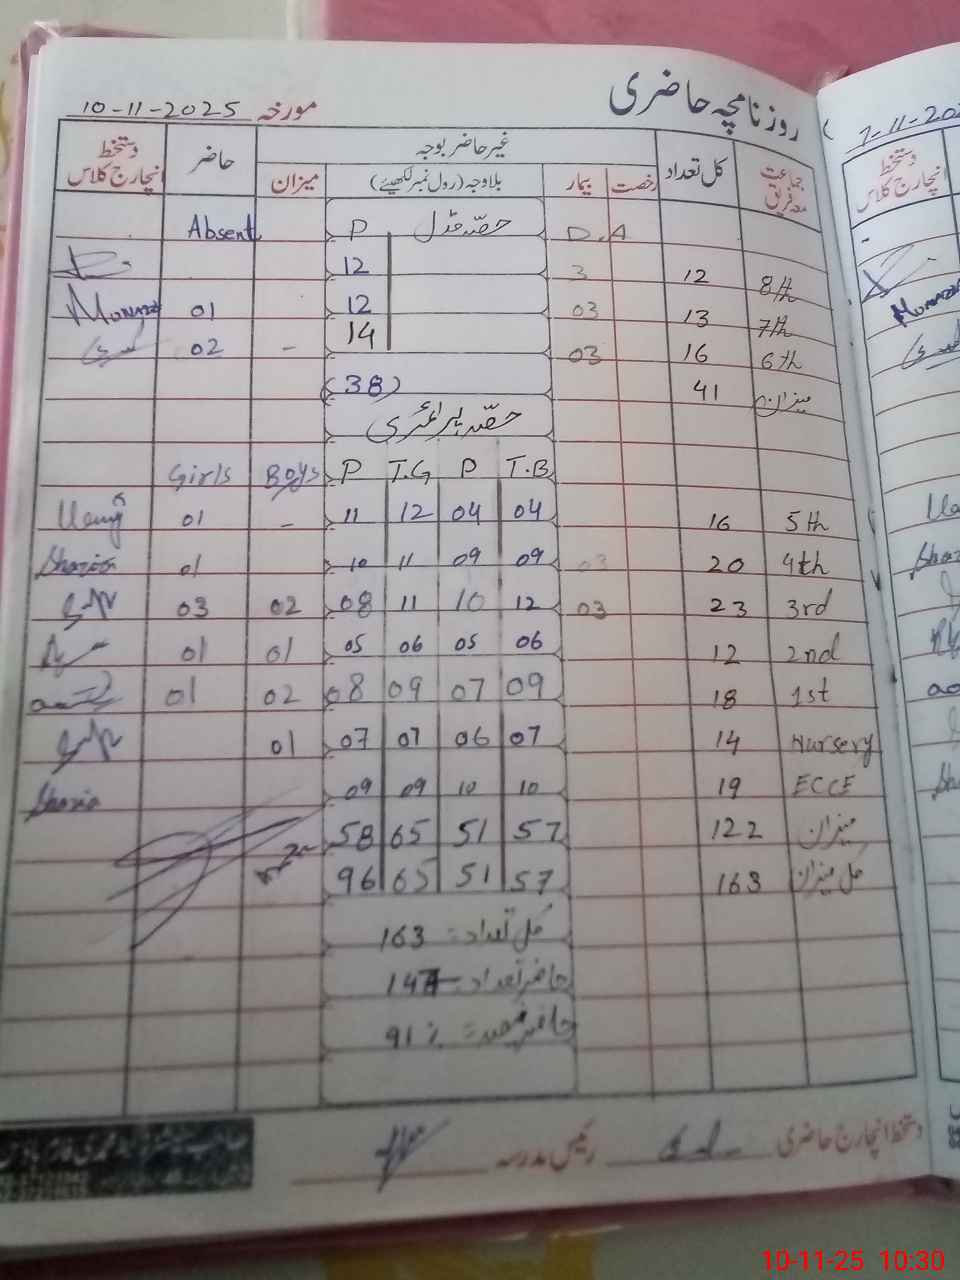 روزنامچہ حاضری
مورخہ 10-11-2025
جماعت معہ فریق کل تعداد غیر حاضر بوجہ حاضر دستخط انچارج کلاس
رخصت بیمار بلاوجہ (رول نمبر لکھیئے) میزان
Absent P حصّہ مڈل D.A
12 3 12 8th
01 12 03 13 7th
02 - 14 03 16 6th
(38) 41 میزان
حصّہ پرائمری
Girls Boys P T.G P T.B
01 - 11 12 04 04 16 5th
01 10 11 09 09 03 20 4th
03 02 08 11 10 12 03 23 3rd
01 01 05 06 05 06 12 2nd
01 02 08 09 07 09 18 1st
01 07 07 06 07 14 Nursery
Shazia 09 09 10 10 19 ECCE
58 65 51 57 122 میزان
96 65 51 57 163 کل میزان
کل تعداد = 163
حاضر تعداد = 147
حاضر فیصد = 91%
دستخط انچارج حاضری رئیس مدرسہ
7-11-202
دستخط
انچارج کلاس
10-11-25 10:30